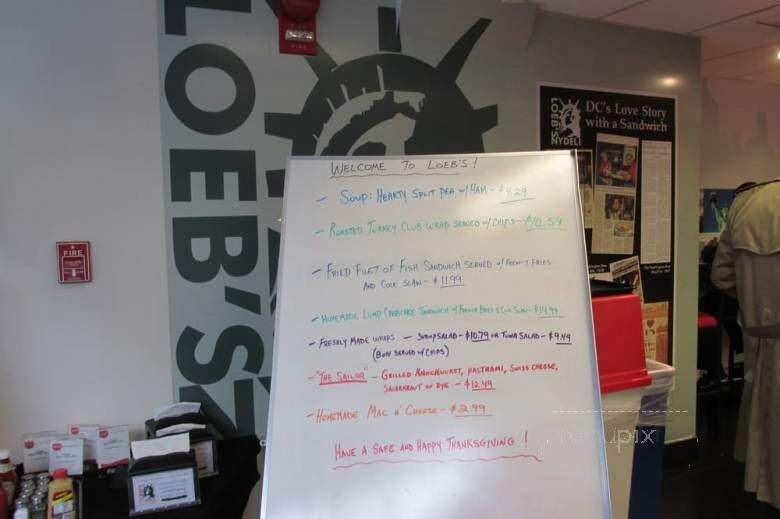 LOEB'S
FIRE
FIRE
LOEB'S
NYDELI
DC's Love Story
with a Sandwich
WELCOME TO LOEB'S!
- SOUP: HEARTY SPLIT PEA w/ HAM - $4.29
- ROASTED TURKEY CLUB WRAP SERVED w/ CHIPS - $10.59
- FRIED FILET OF FISH SANDWICH SERVED w/ FRENCH FRIES
AND COLE SLAW - $11.99
- HOMEMADE LUMP CRABCAKE SANDWICH w/ FRENCH FRIES & COLE SLAW - $14.99
- FRESHLY MADE WRAPS - SHRIMP SALAD - $10.79 OR TUNA SALAD - $9.49
(BOTH SERVED w/ CHIPS)
- "THE SAILOR" - GRILLED KNOCKWURST, PASTRAMI, SWISS CHEESE,
SAUERKRAUT ON RYE - $12.49
- HOMEMADE MAC N' CHEESE - $2.99
HAVE A SAFE AND HAPPY THANKSGIVING!
menupix